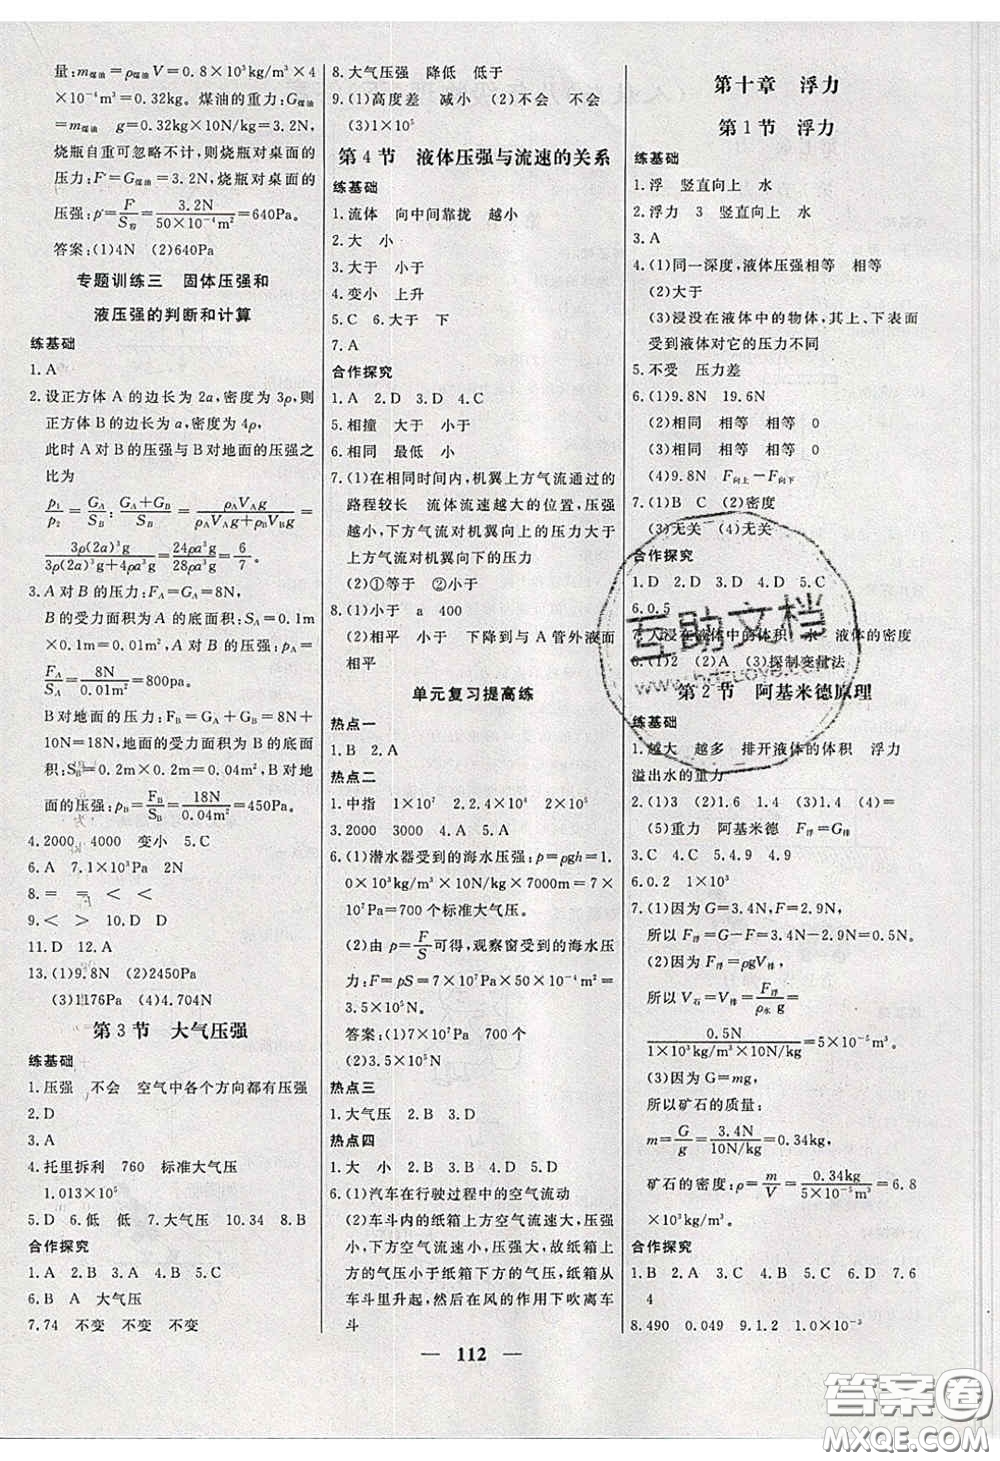 量:m煤油=ρ煤油V=0.8×10³kg/m³×4
×10⁻⁴m³=0.32kg。煤油的重力:G煤油
=m煤油 g=0.32kg×10N/kg=3.2N,
烧瓶自重可忽略不计,则烧瓶对桌面的
压力:F=G煤油=3.2N,烧瓶对桌面的
压强:p=F/S容=3.2N/50×10⁻⁴m²=640Pa。
答案:(1)4N (2)640Pa
专题训练三 固体压强和
液压强的判断和计算
练基础
1.A
2.设正方体 A 的边长为 2a,密度为 3ρ,则
正方体 B 的边长为 a,密度为 4ρ,
此时 A 对 B 的压强与 B 对地面的压强之
比为
p₁/p₂=GA/SB:GA+GB/SB=ρAVAg/ρAVAg+ρBVBg=
3ρ(2a)³g/3ρ(2a)³g+4ρa³g=24ρa³g/28ρa³g=6/7。
3.A 对 B 的压力:FA=GA=8N,
B 的受力面积为 A 的底面积:SA=0.1m
×0.1m=0.01m²,A 对 B 的压强:pA
=FA/SA=8N/0.01m²=800Pa。
B 对地面的压力:FB=GA+GB=8N+
10N=18N,地面的受力面积为 B 的底面
积:SB=0.2m×0.2m=0.04m²,B 对地
面的压强:pB=FB/SB=18N/0.04m²=450Pa。
4.2000 4000 变小 5.C
6.A 7.1×10³Pa 2N
8.= = < <
9.< > 10.D D
11.D 12.A
13.(1)9.8N (2)2450Pa
(3)1176Pa (4)4.704N
第 3 节 大气压强
练基础
1.压强 不会 空气中各个方向都有压强
2.D
3.A
4.托里拆利 760 标准大气压
1.013×10⁵
5.D 6.低 低 7.大气压 10.34 8.B
合作探究
1.A 2.D 3.B 4.D 5.C
6.B A 大气压
7.74 不变 不变 不变
8.大气压强 降低 低于
9.(1)高度差 减小 (2)不会 不会
(3)1×10⁵
第 4 节 液体压强与流速的关系
练基础
1.流体 向中间靠拢 越小
2.大 小
3.大于 小于
4.变小 上升
5.C 6.大于 下
7.A
合作探究
1.A 2.D 3.D 4.C
5.相撞 大于 小于
6.相同 最低 小
7.(1)在相同时间内,机翼上方气流通过的
路程较长 流体流速越大的位置,压强
越小,下方气流对机翼向上的压力大于
上方气流对机翼向下的压力
(2)①等于 ②小于
8.(1)小于 a 400
(2)相平 小于 下降到与 A 管外液面
相平
单元复习提高练
热点一
1.B 2.A
热点二
1.中指 1×10⁷ 2.2.4×10⁴ 2×10⁵
3.2000 3000 4.A 5.A
6.(1)潜水器受到的海水压强:p=ρgh=1.
0×10³kg/m³×10N/kg×7000m=7×
10⁷Pa=700 个标准大气压。
(2)由 p=F/S可得,观察窗受到的海水压
力:F=pS=7×10⁷Pa×50×10⁻⁴m²=
3.5×10⁵N。
答案:(1)7×10⁷Pa 700 个
(2)3.5×10⁵N
热点三
1.大气压 2.B 3.D
热点四
1.大 小 2.C 3.D 4.D 5.B
6.(1)汽车在行驶过程中的空气流动
(2)车斗内的纸箱上方空气流速大,压强
小,下方空气流速小,压强大,故纸箱上方
的气压小于纸箱下方的气压,纸箱会从
车斗里升起,然后在风的作用下吹离车
斗
第十章 浮力
第 1 节 浮力
练基础
1.浮 竖直向上 水
2.浮力 3 竖直向上 水
3.A
4.(1)同一深度,液体压强相等 相等
(2)大于
(3)浸没在液体中的物体,其上、下表面
受到液体对它的压力不同
5.不受 压力差
6.(1)9.8N 19.6N
(2)相同 相等 相等 0
(3)相同 相等 相等 0
(4)9.8N F向上−F向下
7.(1)B C (2)密度
(3)无关 (4)无关
合作探究
1.D 2.D 3.D 4.D 5.C
6.0.5
浸在液体中的体积 水 液体的密度
(1)2 (2)A (3)控制变量法
第 2 节 阿基米德原理
练基础
1.越大 越多 排开液体的体积 浮力
溢出水的重力
2.(1)3.4 (2)1.4 (3)1.4 (4)=
(5)重力 阿基米德 F浮=G排
3.C 4.A 5.4.9 4.9
6.0.2 1×10³
7.(1)因为 G=3.4N,F=2.9N,
所以 F浮=G−F=3.4N−2.9N=0.5N。
(2)因为 F浮=ρgV排
所以 V石=V排=F浮/ρ水 g=
0.5N/1×10³kg/m³×10N/kg=5×10⁻⁵m³。
(3)因为 G=mg,
所以矿石的质量:
m=G/g=3.4N/10N/kg=0.34kg,
矿石的密度:ρ=m/V=0.34kg/5×10⁻⁵m³=6.8
×10³kg/m³。
合作探究
1.B 2.D 3.C 4.D 5.C 6.D 7.6
4
8.490 0.049 9.1.2 1.0×10⁻³
— 112 —
互助文档
www.hdzuoye.com
答案圈
MXQE.COM